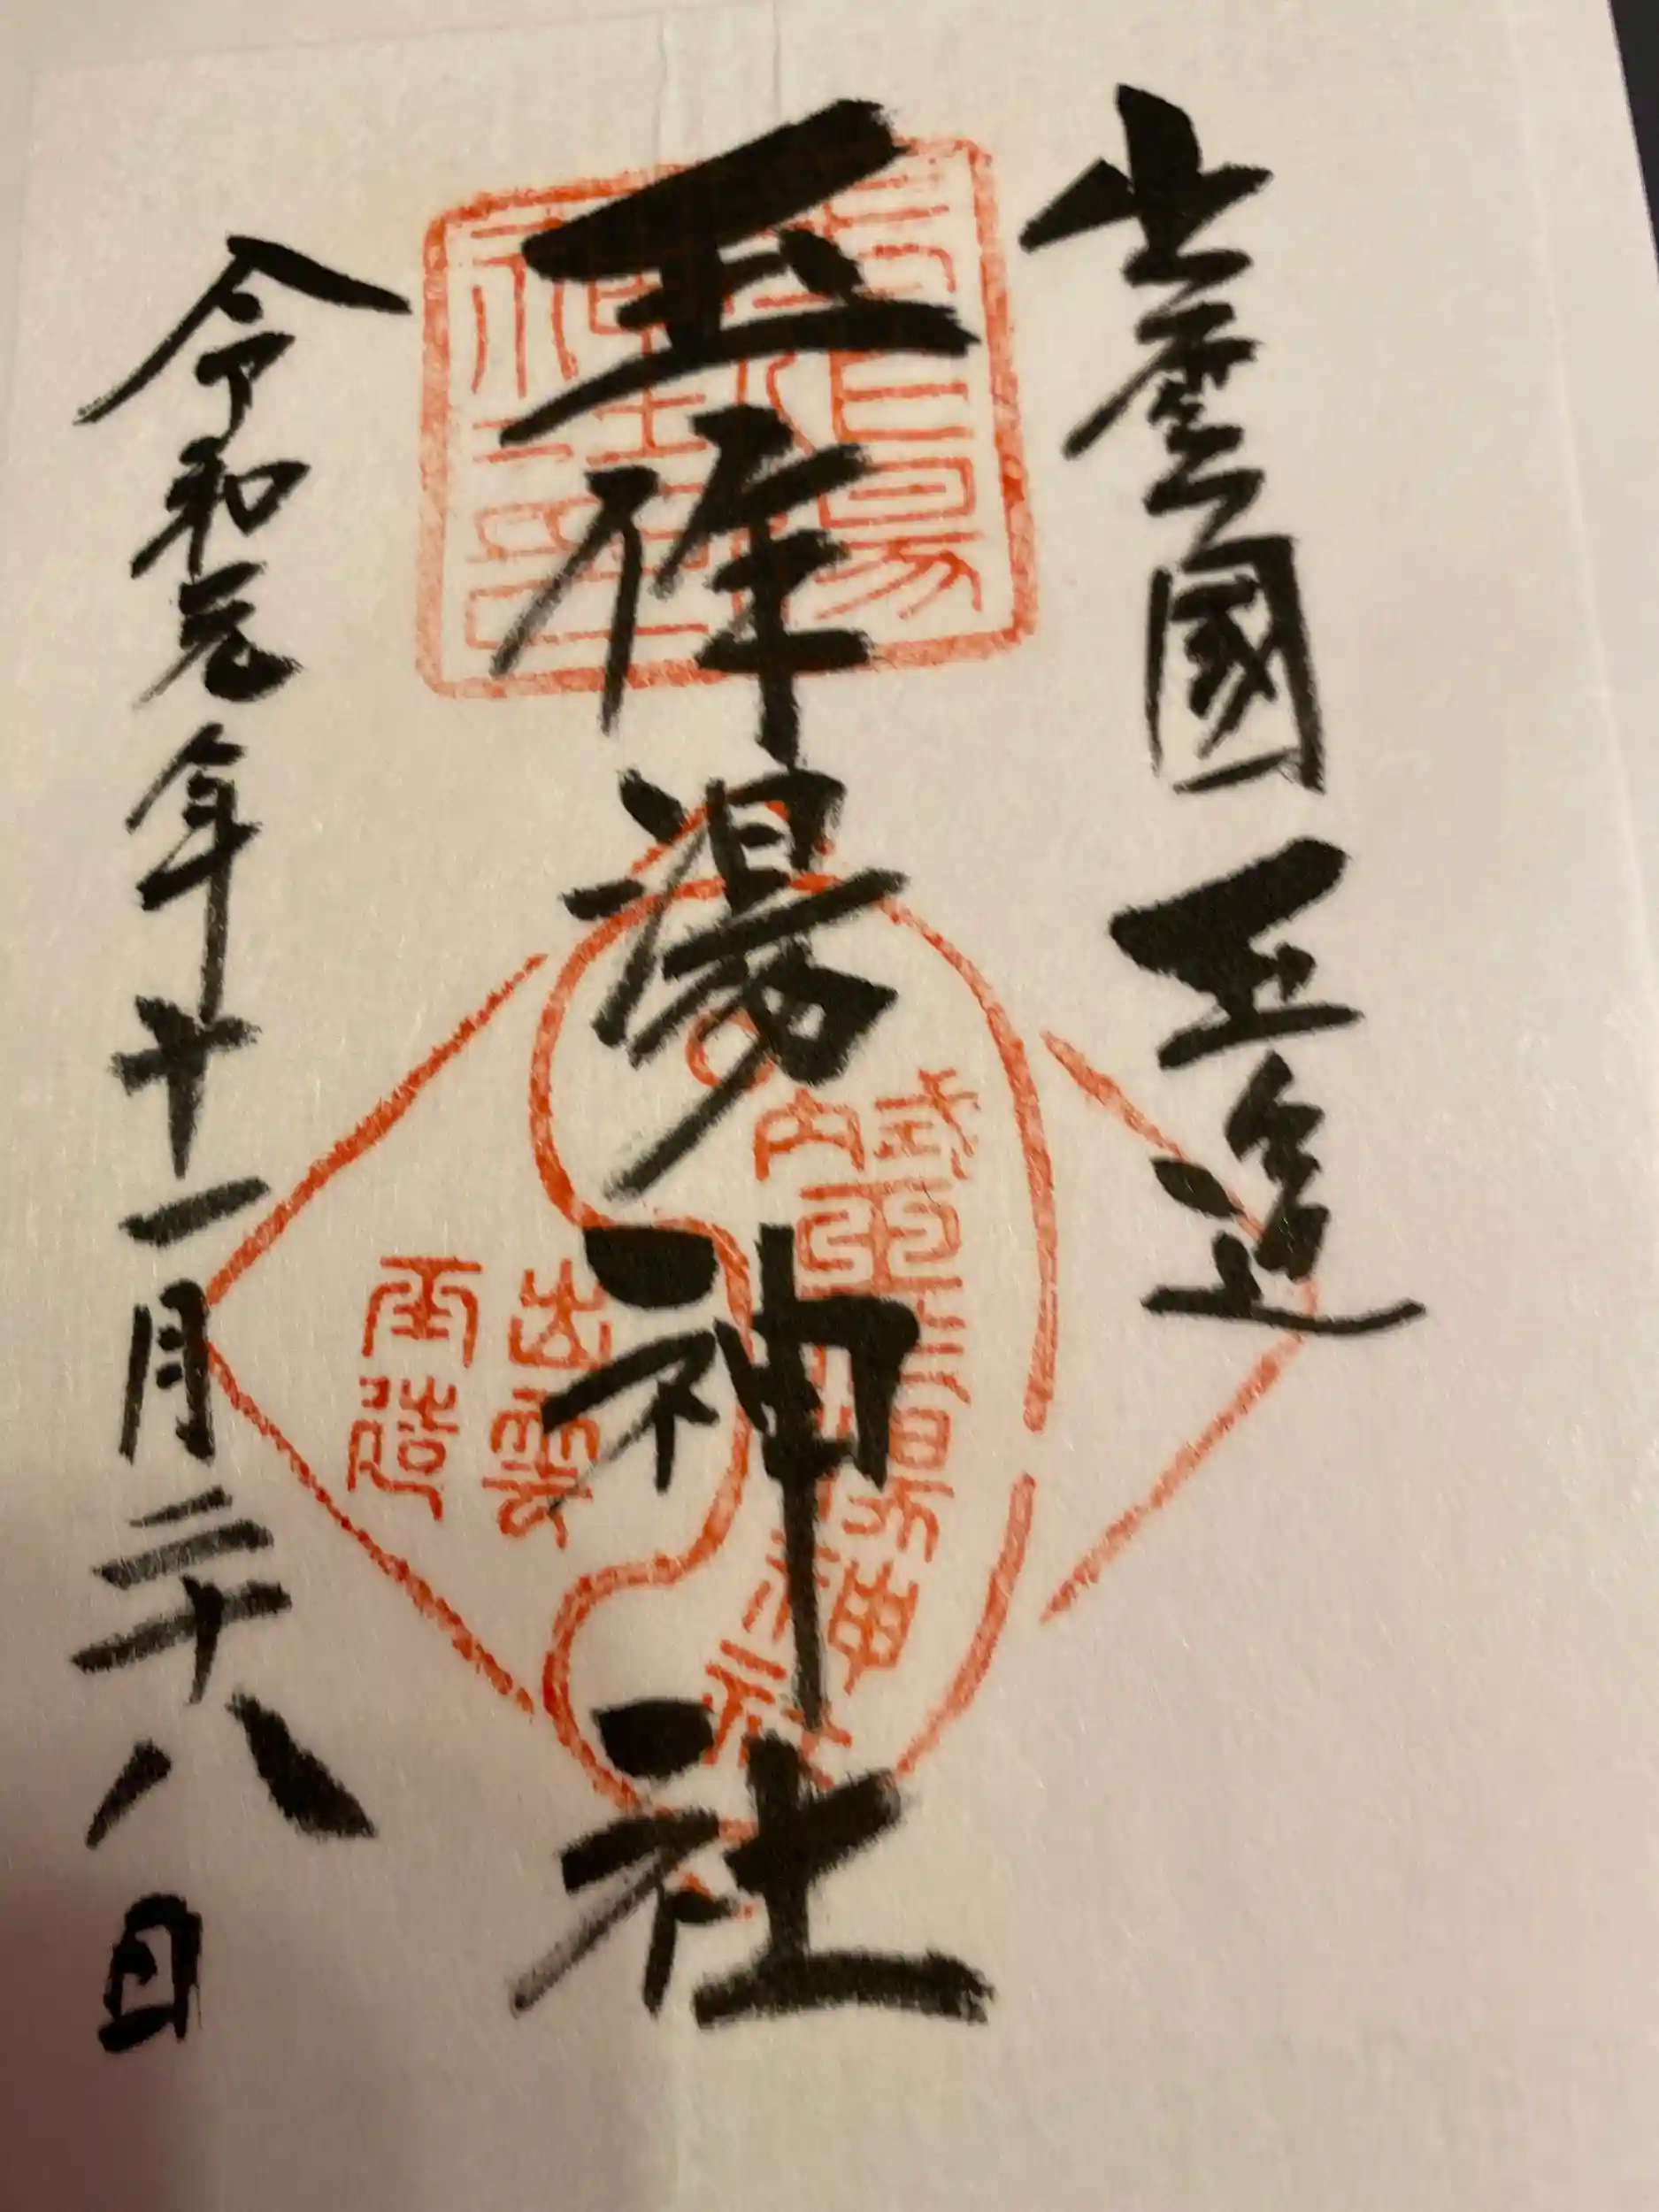 出雲國 玉造
玉作湯神社
令和元年十一月二十八日
式内
玉作湯神社
出雲
玉造